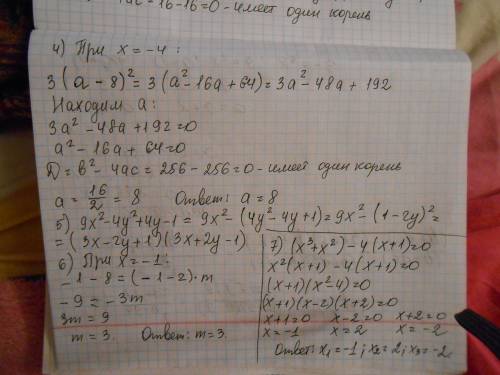 4ac = 16-16=0 - имеет один корень
4) При x = -4 :
3(a-8)² = 3(a²-16a+64) = 3a²-48a+192
Находим a:
3a²-48a+192=0
a²-16a+64=0
D = b²-4ac = 256-256=0 - имеет один корень
a = 16/2 = 8 Ответ: a = 8
5) 9x²-4y²+4y-1 = 9x²-(4y²-4y+1) = 9x²-(1-2y)² =
= (3x-2y+1)(3x+2y-1)
6) При x = -1:
-1-8 = (-1-2)·m
-9 = -3m
3m = 9
m = 3. Ответ: m = 3.
7) (x³+x²)-4(x+1)=0
x²(x+1)-4(x+1)=0
(x+1)(x²-4)=0
(x+1)(x-2)(x+2)=0
x+1=0 x-2=0 x+2=0
x=-1 x=2 x=-2
Ответ: x₁=-1; x₂=2; x₃=-2.